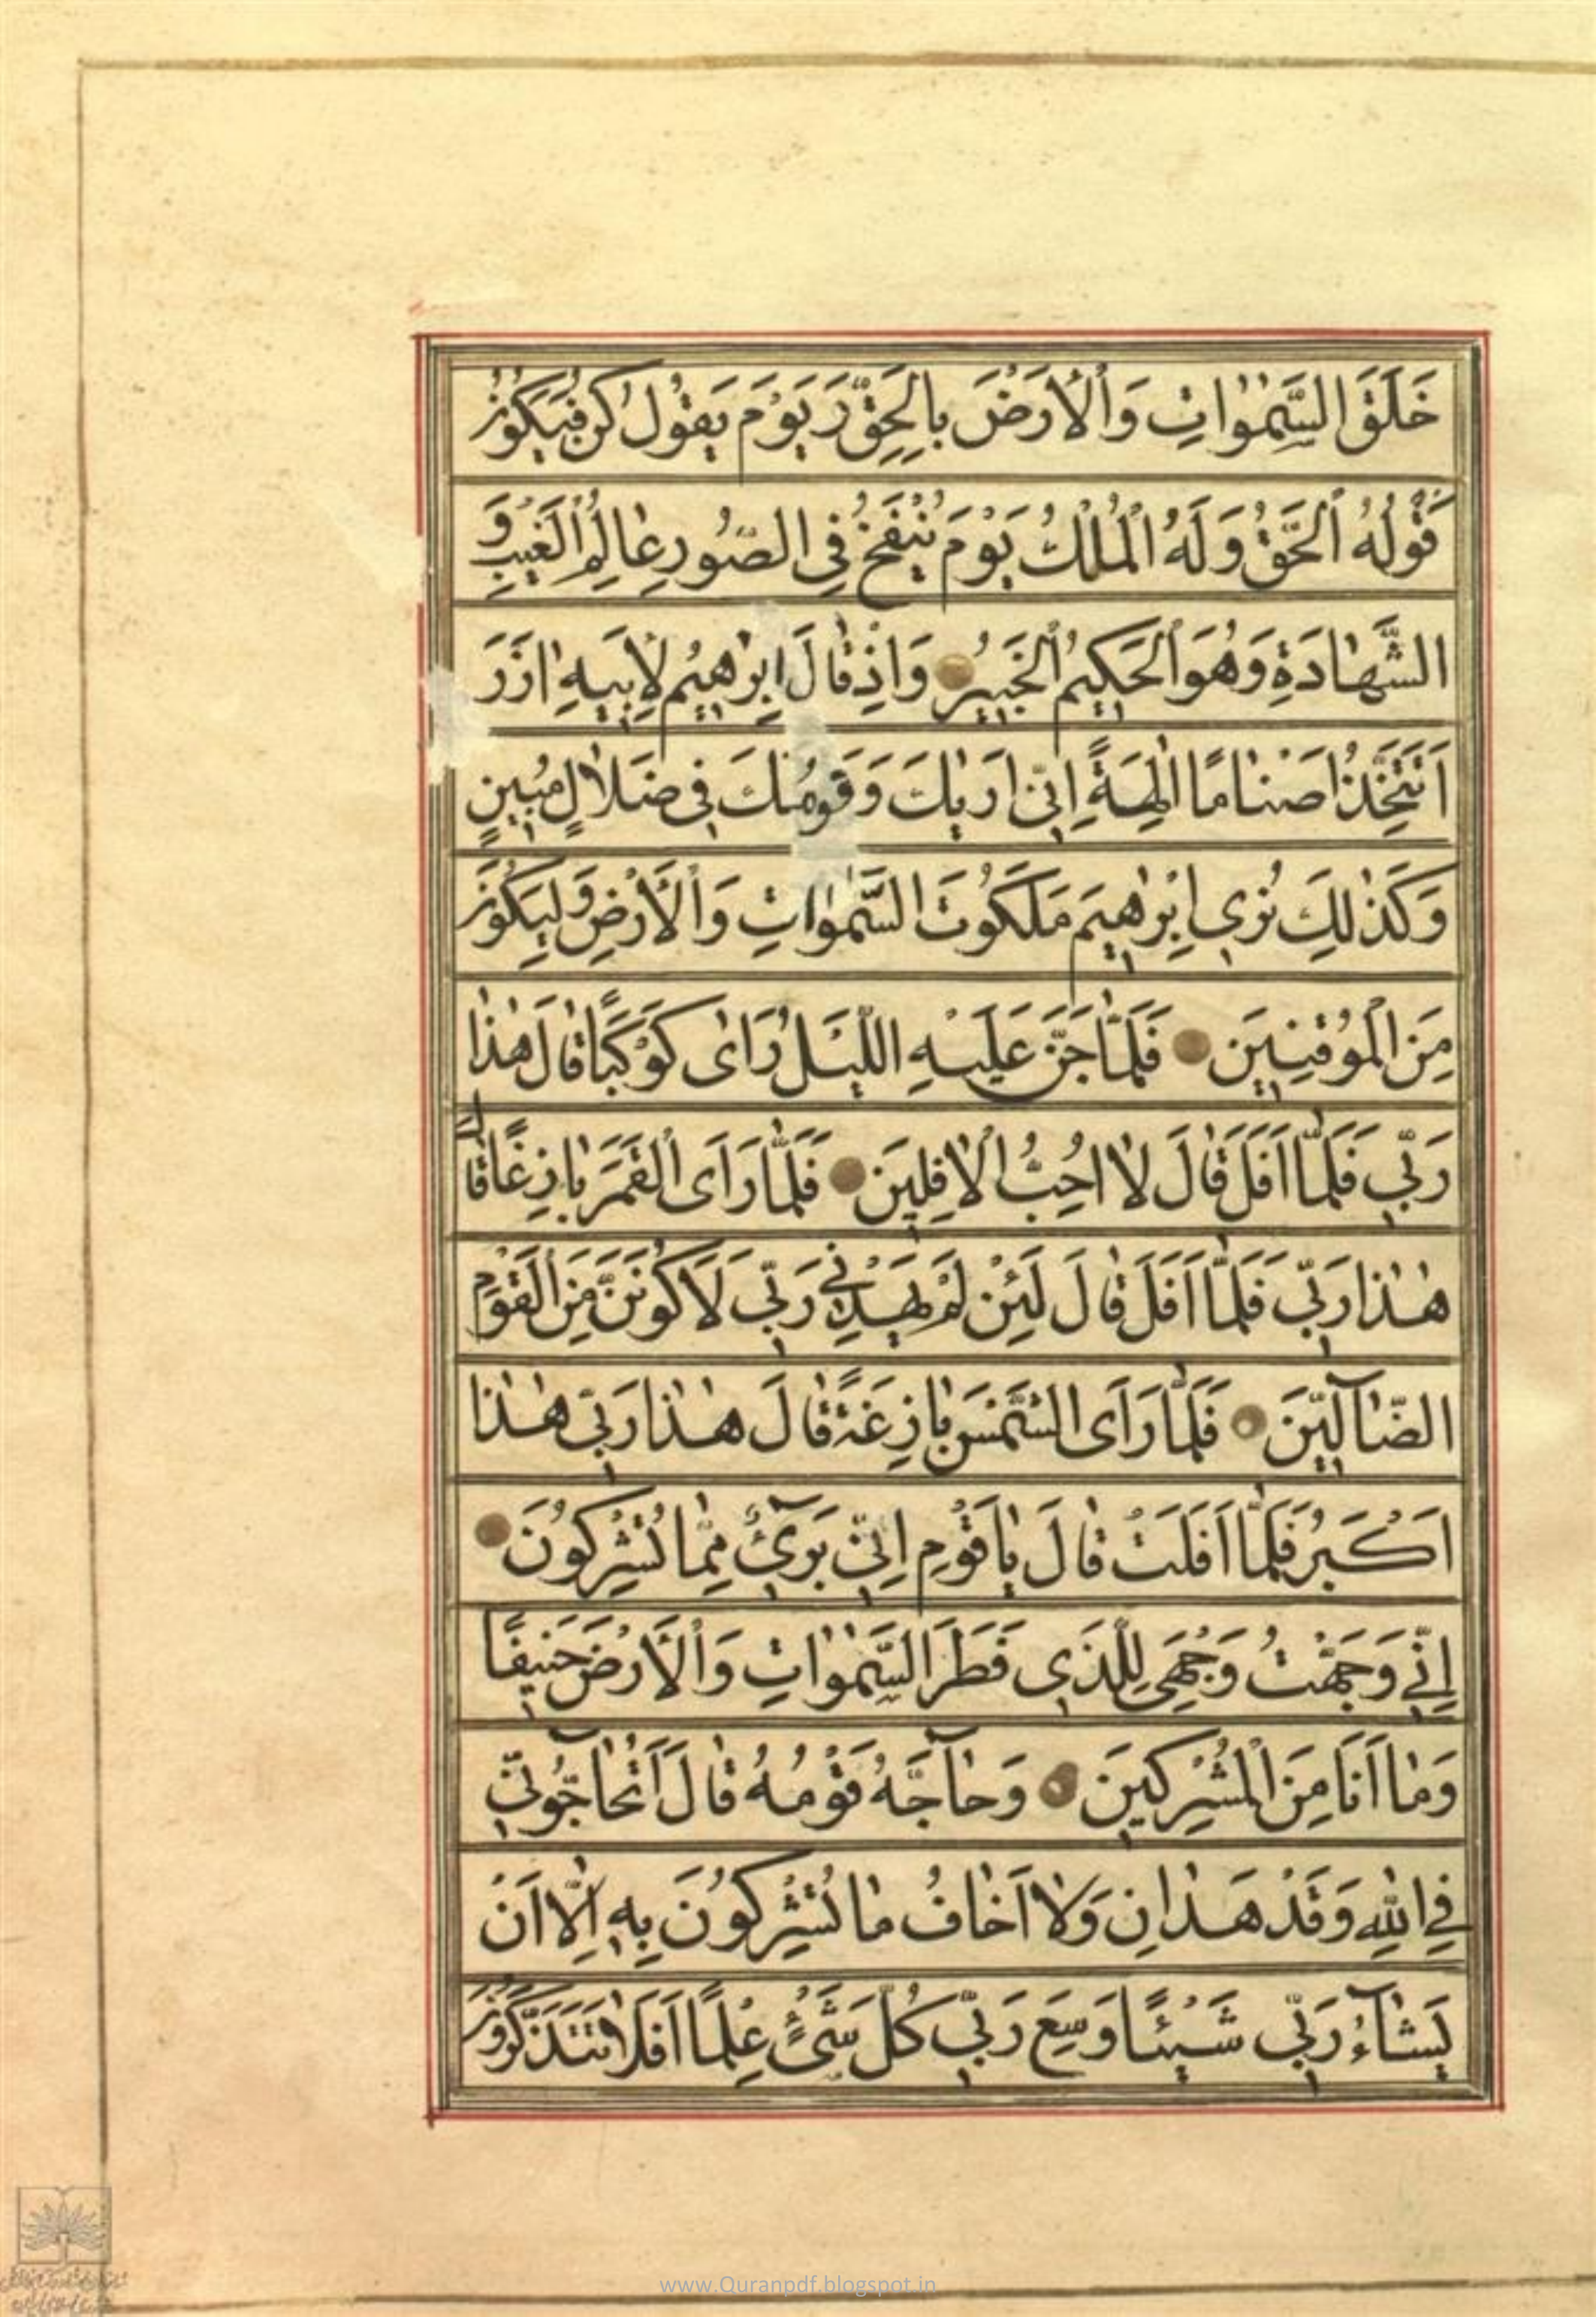 خَلَقَ السَّمٰوٰاتِ وَالْأَرْضَ بِالْحَقِّ وَ يَوْمَ يَقُولُ كُنْ فَيَكُونُ
قَوْلُهُ الْحَقُّ وَلَهُ الْمُلْكُ يَوْمَ يُنْفَخُ فِي الصُّورِ عٰالِمُ الْغَيْبِ وَ
الشَّهٰادَةِ وَهُوَ الْحَكِيمُ الْخَبِيرُ وَاِذْ قٰالَ اِبْرٰهِيمُ لِاَبِيهِ اٰزَرَ
اَتَتَّخِذُ اَصْنٰامًا اٰلِهَةً اِنِّي اَرٰيكَ وَقَوْمَكَ فِي ضَلٰالٍ مُبِينٍ
وَكَذٰلِكَ نُرِي اِبْرٰهِيمَ مَلَكُوتَ السَّمٰوٰاتِ وَالْأَرْضِ وَلِيَكُونَ
مِنَ الْمُوقِنِينَ فَلَمّٰا جَنَّ عَلَيْهِ اللَّيْلُ رَاٰى كَوْكَبًا قٰالَ هٰذٰا
رَبِّي فَلَمّٰا اَفَلَ قٰالَ لٰا اُحِبُّ الْاٰفِلِينَ فَلَمّٰا رَاَى الْقَمَرَ بٰازِغًا قٰالَ
هٰذٰا رَبِّي فَلَمّٰا اَفَلَ قٰالَ لَئِنْ لَمْ يَهْدِنِي رَبِّي لَاَكُونَنَّ مِنَ الْقَوْمِ
الضّٰآلِّينَ فَلَمّٰا رَاَى الشَّمْسَ بٰازِغَةً قٰالَ هٰذٰا رَبِّي هٰذٰا
اَكْبَرُ فَلَمّٰا اَفَلَتْ قٰالَ يٰا قَوْمِ اِنِّي بَرِيٓءٌ مِمّٰا تُشْرِكُونَ
اِنِّي وَجَّهْتُ وَجْهِيَ لِلَّذِي فَطَرَ السَّمٰوٰاتِ وَالْأَرْضَ حَنِيفًا
وَمٰا اَنَا مِنَ الْمُشْرِكِينَ وَحٰآجَّهُ قَوْمُهُ قٰالَ اَتُحٰآجُّونِّي
فِي اللهِ وَقَدْ هَدٰانِ وَلٰا اَخٰافُ مٰا تُشْرِكُونَ بِهِ اِلّٰا اَنْ
يَشٰآءَ رَبِّي شَيْئًا وَسِعَ رَبِّي كُلَّ شَيْءٍ عِلْمًا اَفَلٰا تَتَذَكَّرُونَ
www.Quranpdf.blogspot.in